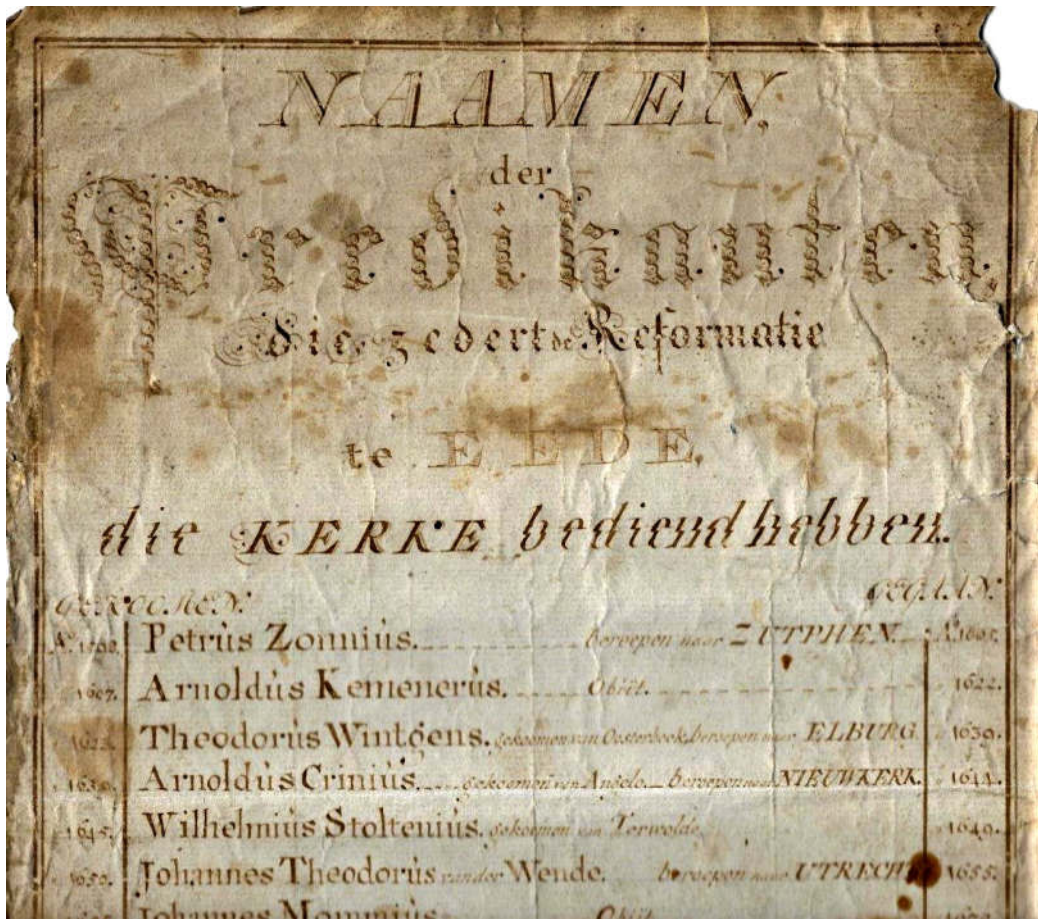 NAAMEN.
der
Predikanten
die zedert de Reformatie
te EEDE.
die KERKE bediend hebben.
GEKOOMEN: GEGAAN:
Aº. 1598. Petrùs Zonniùs. beroepen naar ZUTPHEN. Aº.
1607. Arnoldùs Kemenerùs. Obiit. 1622.
1622. Theodorùs Wintgens. gekoomen van Oosterbeek, beroepen naar ELBURG. 1639.
1639. Arnoldùs Criniùs. gekoomen van Angelo. beroepen naar NIEUWKERK. 1644.
1645. Wilhelmiùs Stolteniùs. gekoomen van Terwolde. 1649.
1650. Johannes Theodorùs van der Wende. beroepen naar UTRECHT 1655.
Johannes Mommiùs. Obiit.